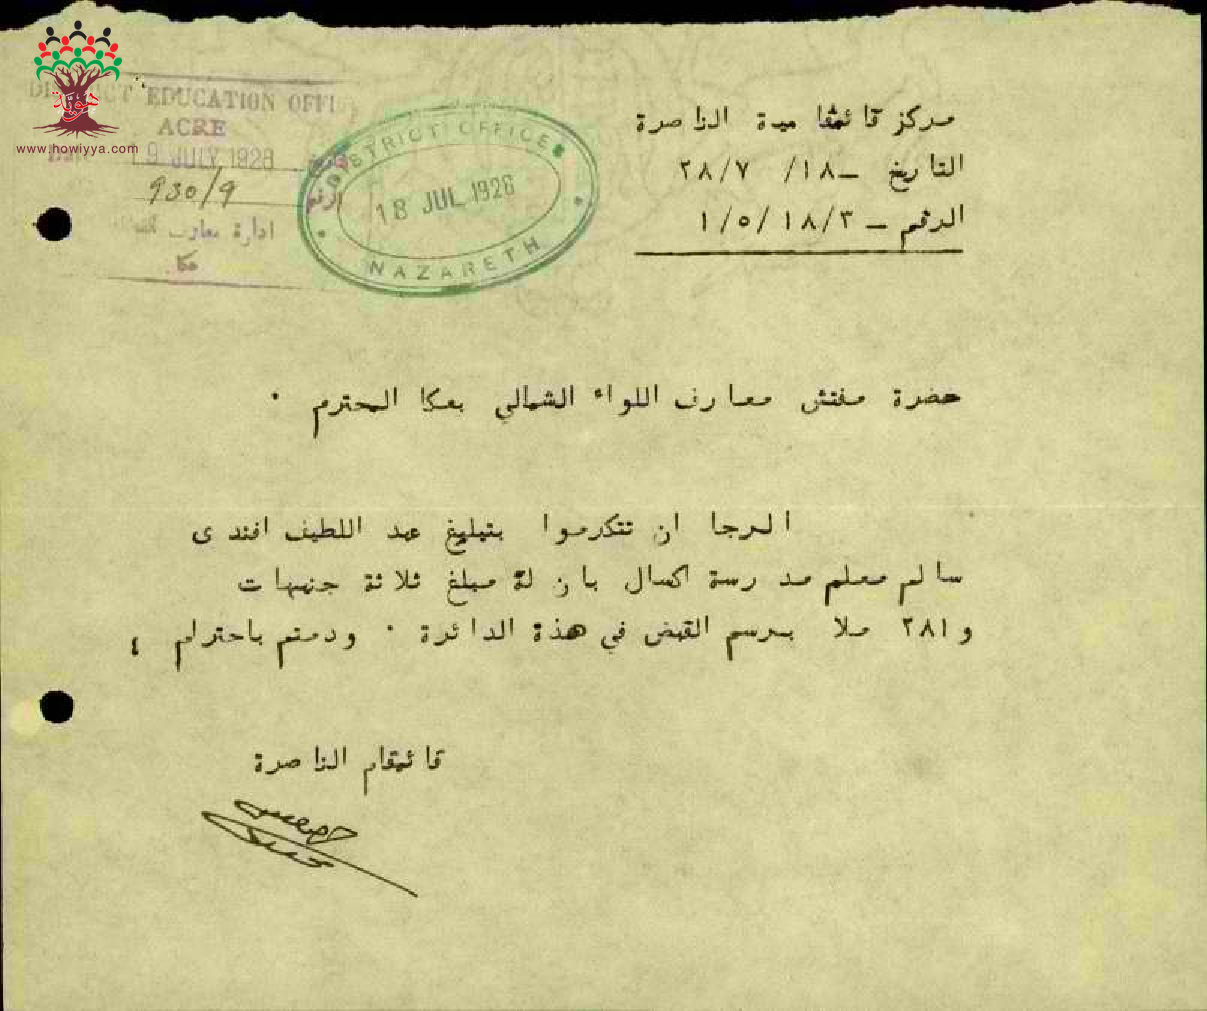 هوية
www.howiyya.com
DISTRICT EDUCATION OFFI
ACRE
Date 19 JULY 1928 تاريخ
930/9 الرقم
ادارة معارف
عكا
DISTRICT OFFICE
18 JUL 1928
NAZARETH
مركز قائمقامية الناصرة
التاريخ – ١٨/ ٢٨/٧
الرقم – ١/٥/١٨/٣
حضرة مفتش معارف اللواء الشمالي بعكا المحترم ·
الرجا ان تتكرموا بتبليغ عبد اللطيف افندى
سالم معلم مدرسة اكسال بان لة مبلغ ثلاثة جنيهات
و٢٨١ ملا برسم القبض في هذة الدائرة · ودمتم باحترام ؛
قائمقام الناصرة